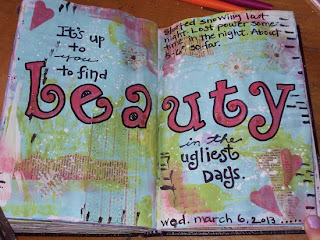 It's up
to
you
to find
beauty
in the
ugliest
Days.
Started snowing last
night. Lost power some-
time in the night. About
5-6" so far.
wed. march 6, 2013.....